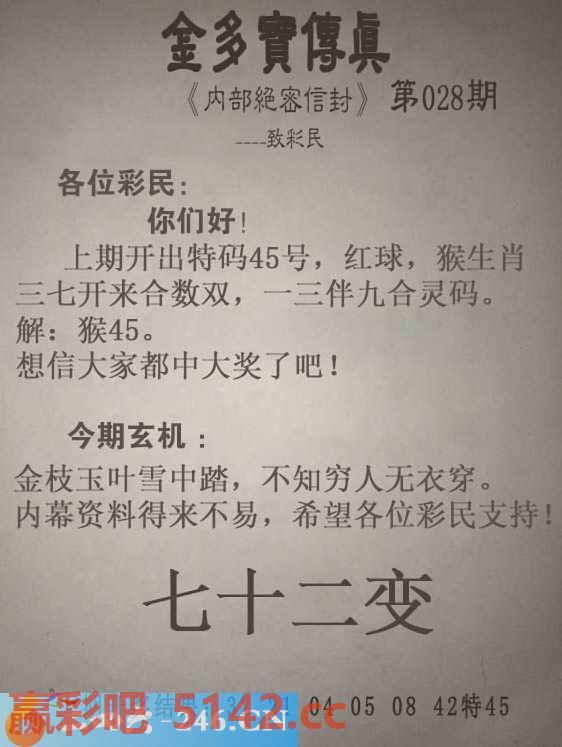 金多寶傳眞
《内部絕密信封》 第028期
----致彩民
各位彩民：
你们好！
上期开出特码45号，红球，猴生肖
三七开来合数双，一三伴九合灵码。
解：猴45。
想信大家都中大奖了吧！
今期玄机：
金枝玉叶雪中踏，不知穷人无衣穿。
内幕资料得来不易，希望各位彩民支持！
七十二变
04 05 08 42特45
赢彩吧 5142.cc
246.CN